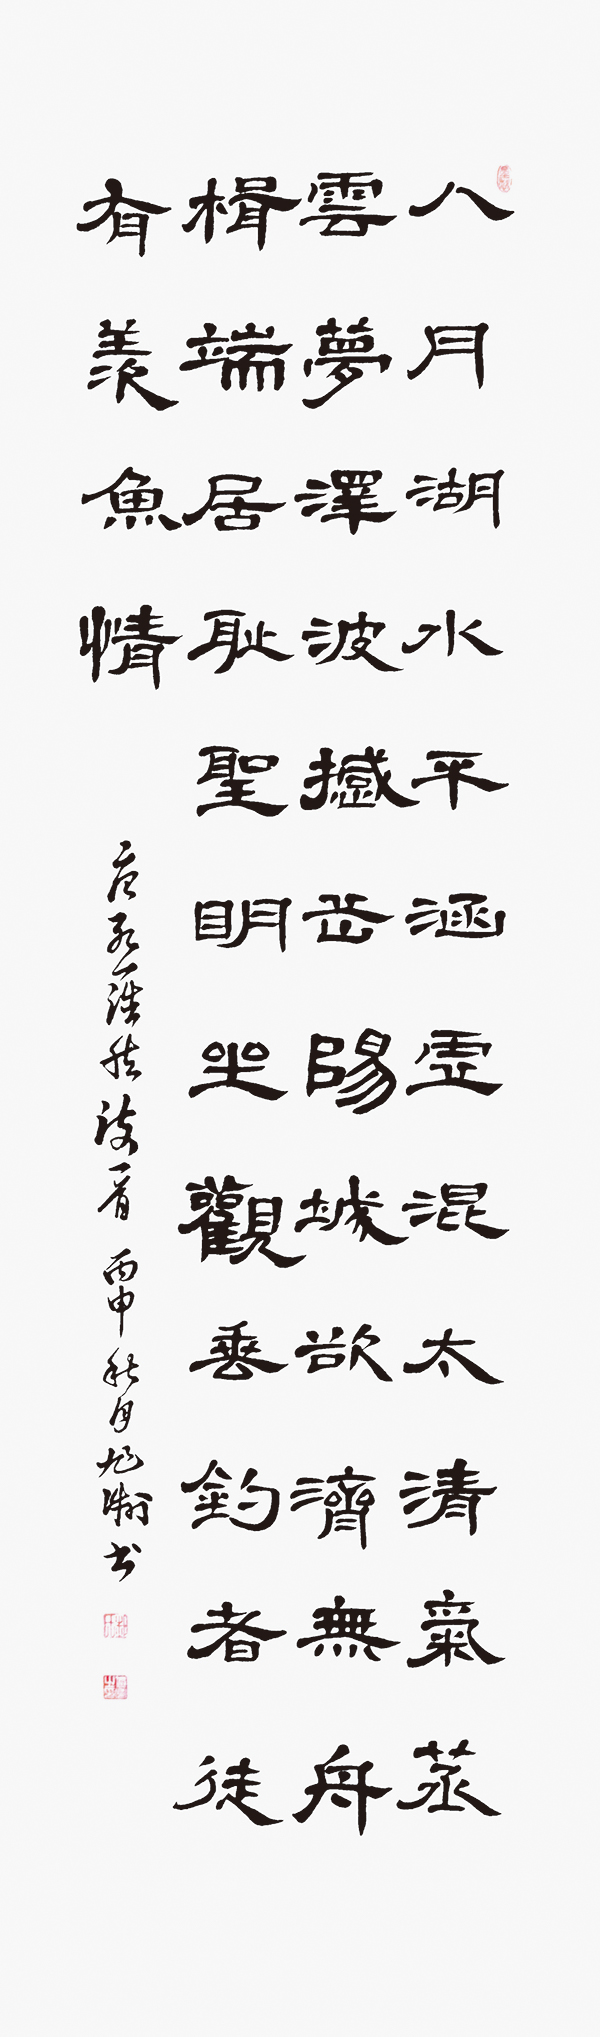 八月湖水平涵虚混太清氣蒸
雲夢澤波撼岳陽城欲濟無舟
楫端居耻聖明坐觀垂釣者徒
有羨魚情
唐孟浩然诗一首 丙申秋月旭书